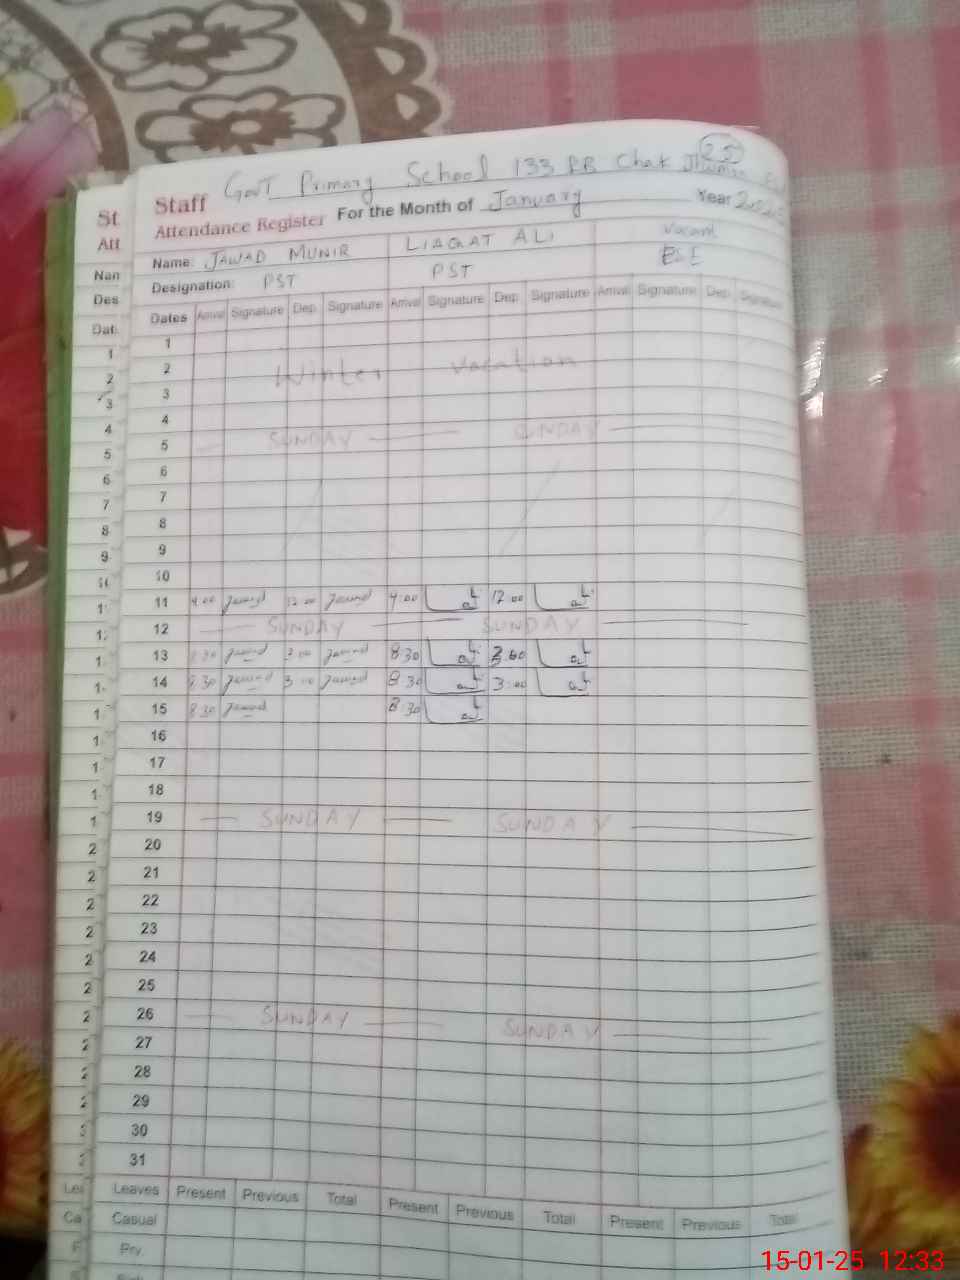 25
Govt Primary School 133 RB Chak Jhumra
Staff
Attendance Register For the Month of January Year 2025
Name: JAWAD MUNIR LIAQAT ALI Vacant
Designation: PST PST ESE
Dates Arrival Signature Dep. Signature Arrival Signature Dep. Signature Arrival Signature Dep. Signature
1
2 Winter vacation
3
4
5 SUNDAY SUNDAY
6
7
8
9
10
11 9.00 Jawad 12.00 Jawad 9.00 12.00
12 SUNDAY SUNDAY
13 8.30 Jawad 3.00 Jawad 8.30 3.00
14 8.30 Jawad 3.00 Jawad 8.30 3:00
15 8.30 Jawad 8.30
16
17
18
19 SUNDAY SUNDAY
20
21
22
23
24
25
26 SUNDAY SUNDAY
27
28
29
30
31
Leaves Present Previous Total Present Previous Total Present Previous Total
Casual
Prv.
St
Att
Nan
Des
Dat
1
2
3
4
5
6
7
8
9
15-01-25 12:33